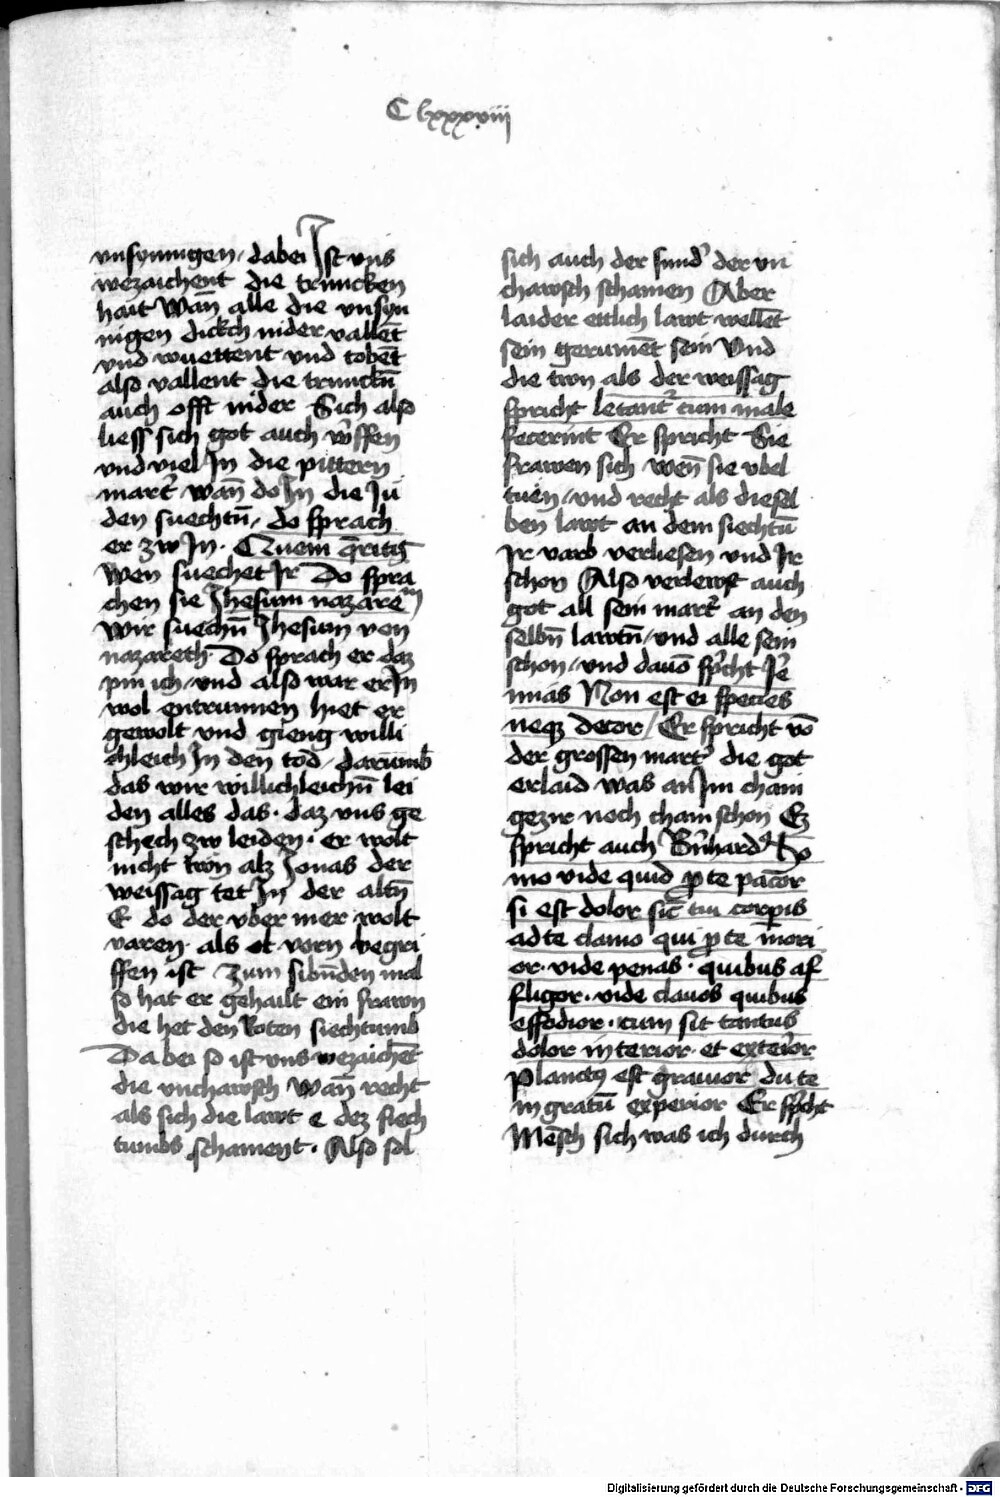 C lxxxxviii
vnsynnigen / dabei Ist vns
wezaichent die truncken
hait Wan̄ alle die vnsyn
nigen dickch nider vallēt
vnd wuettent vnd tobēt
also vallent die trunckn̄
auch offt nider Sich also
liess sich got auch w̄ffen
vnd viel In die pittern
mart͛ wan̄ do In die Ju
den suechtn̄ / do sprach
er zw In · Quem q̄ritis
Wen suechet Ir Do spra
chen sie Jhesum nazarenū
Wir suechn̄ Jhesum von
nazareth · Do sprach er daz
pin ich / vnd also war er In
wol entrunnen hiet er
gewolt vnd gieng willi
chleich In den tod / darumb
das wir willichleichn̄ lei
den alles das · daz vns ge
schech zw leiden · er wolt
nicht twn alz Jonas der
weissag tet In der altn̄
E do der vber mer wolt
varen · als et vorn begri
ffen ist Zum sibn̄den mal
so hat er gehailt ein frawn
die het den Roten siechtumb
Da bei so ist vns wezaichēt
die vnchawsch Wan̄ recht
als sich die lawt e dez siech
tumbs schament · Also sol
sich auch der sund͛ der vn
chawsch schamen Aber
laider ettlich lawt wellēt
sein gerumēt sein Vnd
die twn als der weissag
spricht letant͛ cum male
fecerint Er spricht Sie
frawen sich wen̄ sie vbel
tuen / vnd recht als diesel
ben lawt an dem siechtū
Ir varb verliesen vnd Ir
schon Also verlewst auch
got all sein mart͛ an den
selbn̄ lawtn̄ / vnd alle sein
schon / vnd dauō sp̄cht Je͛
mias Non est ei species
neqꝫ decor / Er spricht vō
der grossen mart͛ die got
erlaid was an Im chain
gezir noch chain schon Ez
spricht auch Bn̄hard9 Ho
mo vide quid ꝓ te pacior
si est dolor sic̄ tui corꝑis
ad te clamo qui ꝓ te mori
or · vide penas · quibus af
fligor · vide clauos quibus
effodior · cum sit tantus
dolor interior · et exterior
planctꝯ est grauior du te
in gratū experior Er sp̄cht
Mēsch sich was ich durch
Digitalisierung gefördert durch die Deutsche Forschungsgemeinschaft - DFG